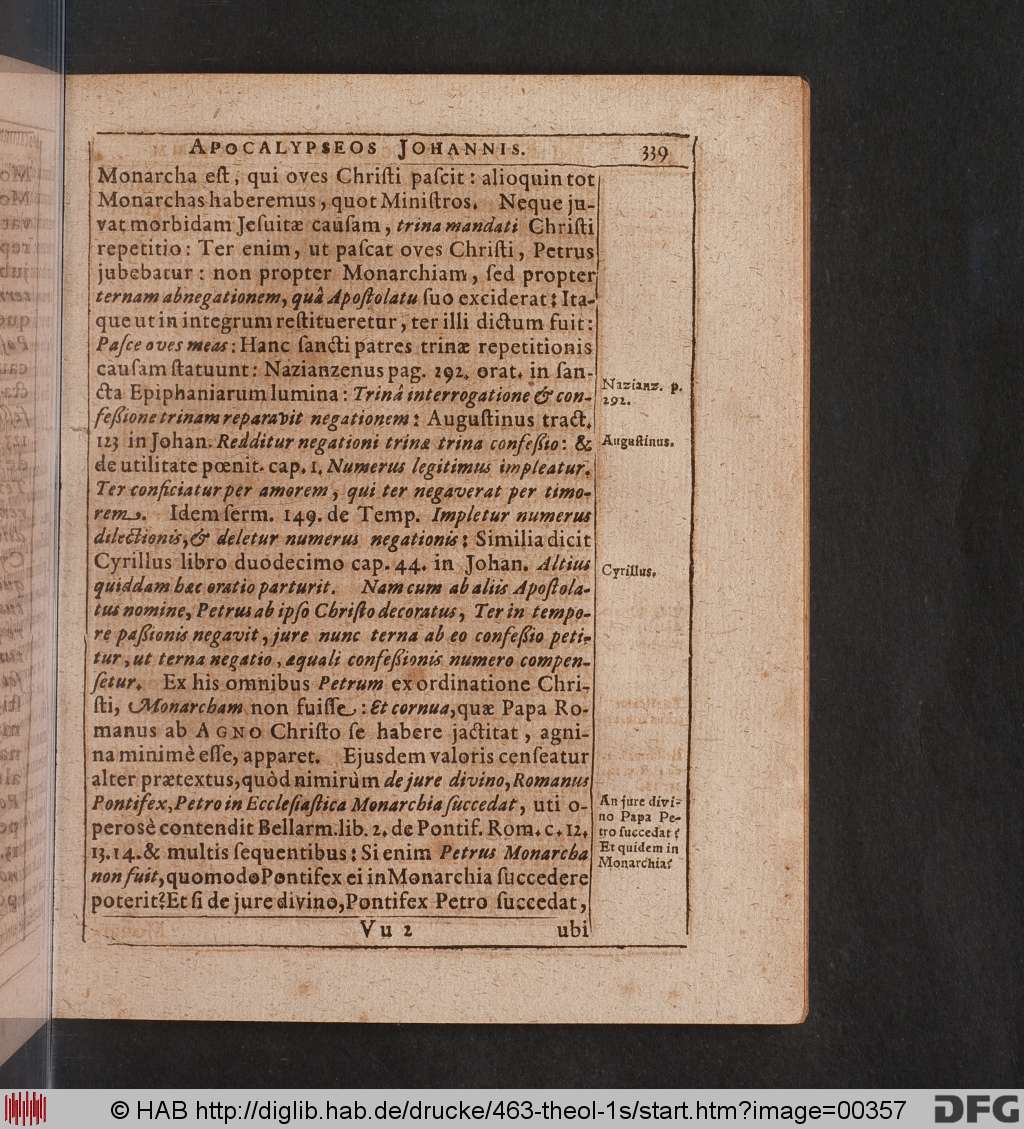 APOCALYPSEOS JOHANNIS. 339
Monarcha eſt, qui oves Chriſti paſcit: alioquin tot
Monarchas haberemus, quot Miniſtros. Neque ju-
vat morbidam Jeſuitæ cauſam, trina mandati Chriſti
repetitio: Ter enim, ut paſcat oves Chriſti, Petrus
jubebatur: non propter Monarchiam, ſed propter
ternam abnegationem, quâ Apoſtolatu ſuo exciderat: Ita-
que ut in integrum reſtitueretur, ter illi dictum fuit:
Paſce oves meas: Hanc ſancti patres trinæ repetitionis
cauſam ſtatuunt: Nazianzenus pag. 292. orat. in ſan-
cta Epiphaniarum lumina: Trinâ interrogatione & con-
feßione trinam reparavit negationem: Auguſtinus tract.
123 in Johan. Redditur negationi trinæ trina confeßio: &
de utilitate pœnit. cap. 1. Numerus legitimus impleatur.
Ter conficiatur per amorem, qui ter negaverat per timo-
rem. Idem ſerm. 149. de Temp. Impletur numerus
dilectionis, & deletur numerus negationis: Similia dicit
Cyrillus libro duodecimo cap. 44. in Johan. Altius
quiddam hæc oratio parturit. Nam cum ab aliis Apoſtola-
tus nomine, Petrus ab ipſo Chriſto decoratus, Ter in tempo-
re paßionis negavit, jure nunc terna ab eo confeßio peti-
tur, ut terna negatio, æquali confeßionis numero compen-
ſetur. Ex his omnibus Petrum ex ordinatione Chri-
ſti, Monarcham non fuiſſe: Et cornua, quæ Papa Ro-
manus ab AGNO Chriſto ſe habere jactitat, agni-
na minimè eſſe, apparet. Ejusdem valoris cenſeatur
alter prætextus, quòd nimirùm de jure divino, Romanus
Pontifex, Petro in Eccleſiaſtica Monarchia ſuccedat, uti o-
perosè contendit Bellarm. lib. 2. de Pontif. Rom. c. 12.
13. 14. & multis ſequentibus: Si enim Petrus Monarcha
non fuit, quomodo Pontifex ei in Monarchia ſuccedere
poterit? Et ſi de jure divino, Pontifex Petro ſuccedat,
Vu 2 ubi
Nazianz. p.
292.
Auguſtinus.
Cyrillus.
An jure divi-
no Papa Pe-
tro ſuccedat?
Et quidem in
Monarchia?
© HAB http://diglib.hab.de/drucke/463-theol-1s/start.htm?image=00357
DFG